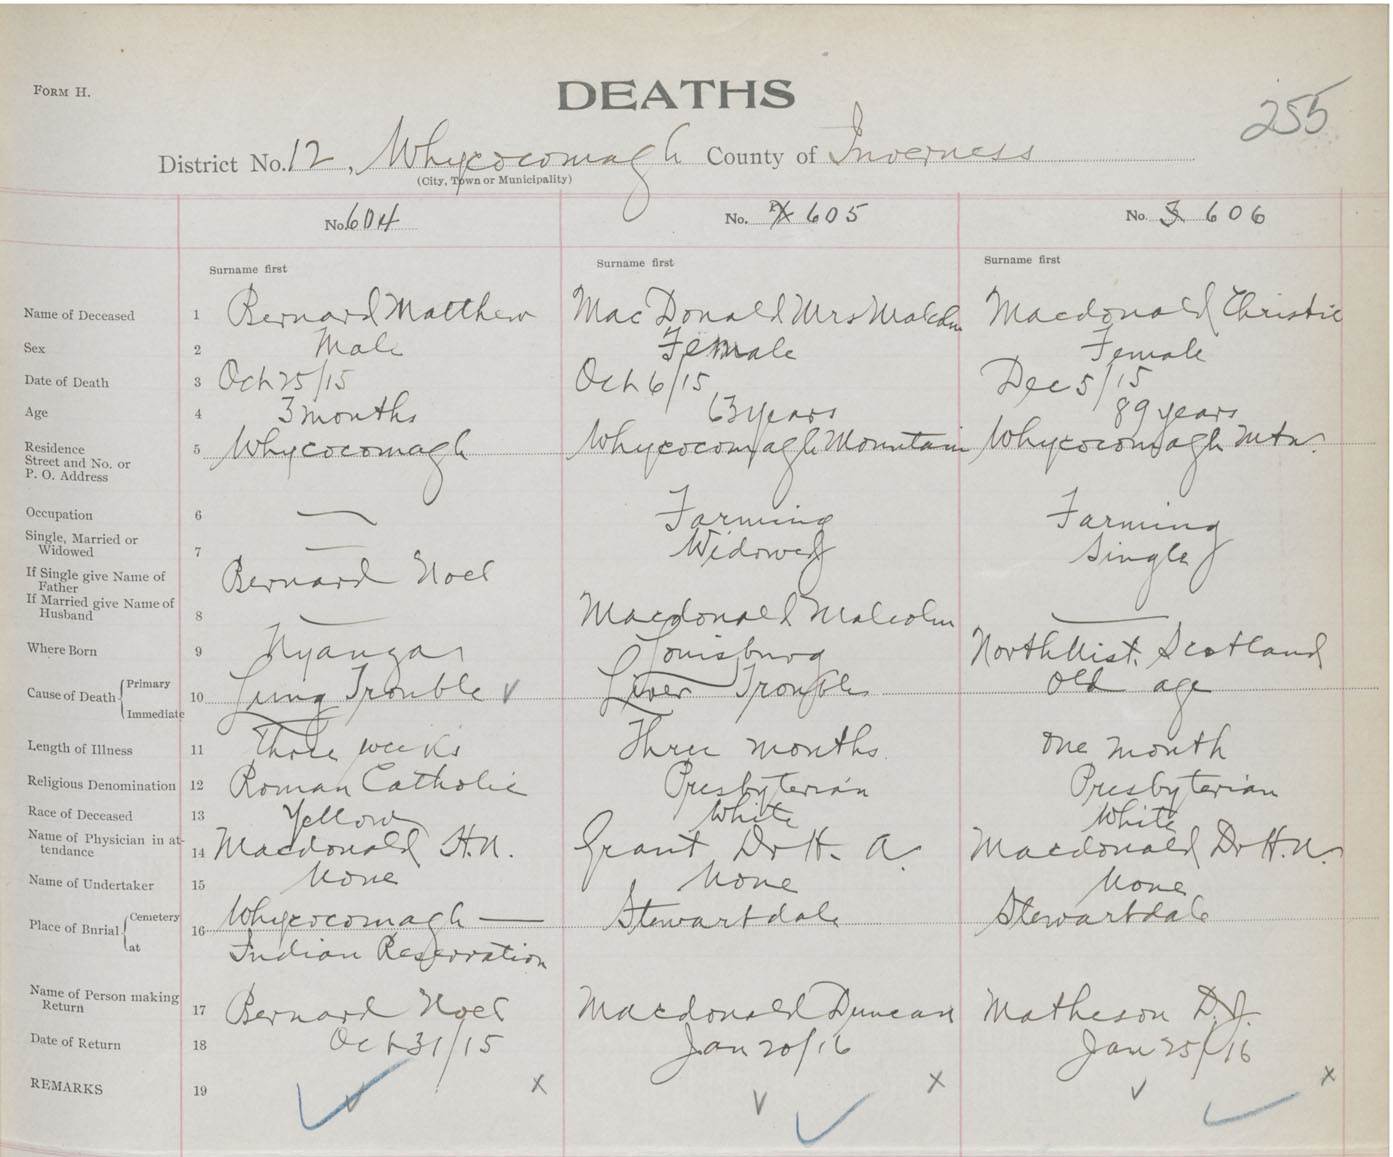 FORM H.
DEATHS
255
District No. 12, Whycocomagh County of Inverness
(City, Town or Municipality)
No. 604
No. 605
No. 3 606
Surname first
Surname first
Surname first
Name of Deceased 1 Bernard Matthew MacDonald Mrs Malcolm Macdonald Christie
Sex 2 Male Female Female
Date of Death 3 Oct 25/15 Oct 6/15 Dec 5/15
Age 4 3 months 63 years 89 years
Residence
Street and No. or
P. O. Address
5 Whycocomagh Whycocomagh Mountain Whycocomagh Mtn.
Occupation 6 — Farming Farming
Single, Married or
Widowed
7 — Widowed Single
If Single give Name of
Father
Bernard Noel
If Married give Name of
Husband
8 — Macdonald Malcolm —
Where Born 9 Nyanza Louisburg North Uist. Scotland
Cause of Death { Primary
Immediate
10 Lung Trouble v Liver Trouble Old age
Length of Illness 11 Three weeks Three months. One month
Religious Denomination 12 Roman Catholic Presbyterian Presbyterian
Race of Deceased 13 Yellow White White
Name of Physician in at-
tendance
14 Macdonald H.N. Grant Dr H. A. Macdonald Dr H.N.
Name of Undertaker 15 None None None
Place of Burial { Cemetery
at
16 Whycocomagh — Stewartdale Stewartdale
Indian Reservation
Name of Person making
Return
17 Bernard Noel Macdonald Duncan Matheson D.J.
Date of Return 18 Oct 31/15 Jan 20/16 Jan 25/16
REMARKS 19 x x x